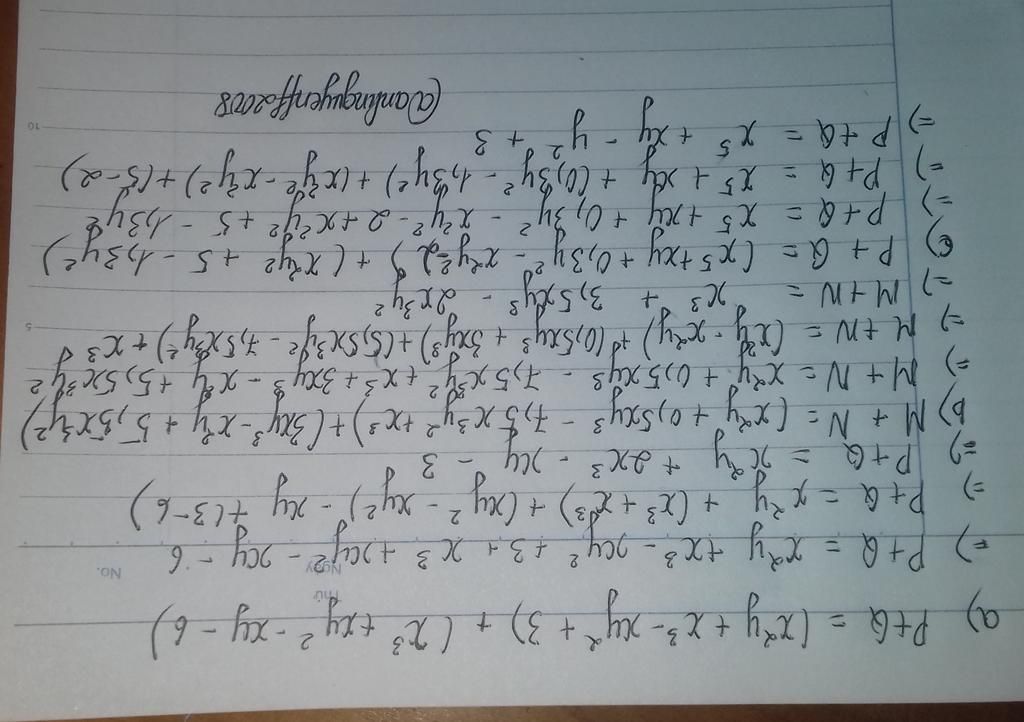 Thứ
Ngày No.
a) P+Q = (x²y + x³ - xy² + 3) + (x³ + xy² - xy - 6)
=) P+Q = x²y + x³ - xy² + 3 + x³ + xy² - xy - 6
=) P+Q = x²y + (x³ + x³) + (xy² - xy²) - xy + (3-6)
=) P+Q = x²y + 2x³ - xy - 3
b) M + N = (x²y + 0,5xy³ - 7,5x³y² + x³) + (3xy³ - x²y + 5,5x³y²)
=) M + N = x²y + 0,5xy³ - 7,5x³y² + x³ + 3xy³ - x²y + 5,5x³y²
=) M+N = (x²y - x²y) + (0,5xy³ + 3xy³) + (5,5x³y² - 7,5x³y²) + x³
5
=) M+N = x³ + 3,5xy³ - 2x³y²
c) P + Q = (x⁵ + xy + 0,3y² - x²y² - 2) + (x²y² + 5 - 1,3y²)
=) P+Q = x⁵ + xy + 0,3y² - x²y² - 2 + x²y² + 5 - 1,3y²
=) P+Q = x⁵ + xy + (0,3y² - 1,3y²) + (x²y² - x²y²) + (5-2)
=) P+Q = x⁵ + xy - y² + 3
10
@anhnguyenff2008